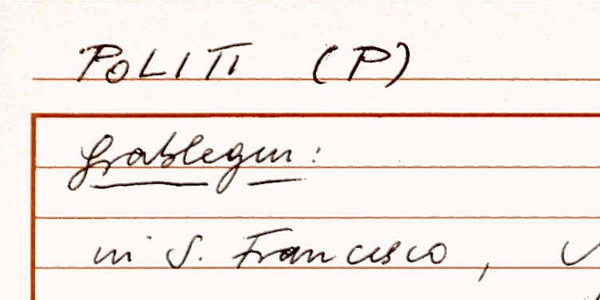 POLITI (P)
Grablegen:
in S. Francesco,